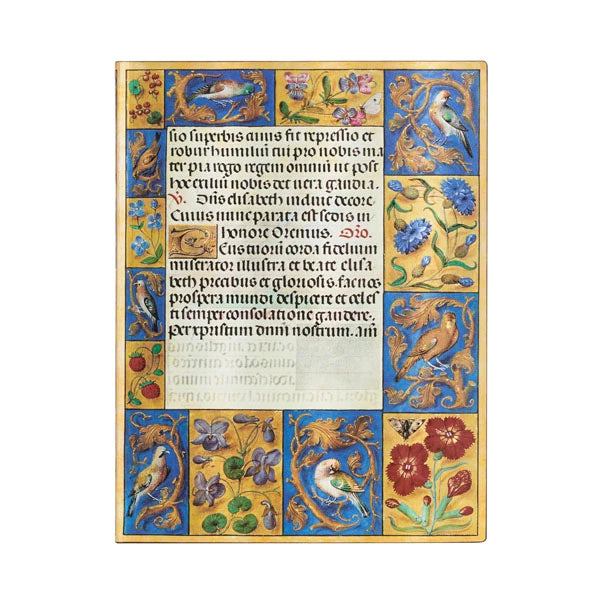 sio superbis cuius fit repressio et
robur humiliū tui pro nobis ma
ter pia rogo regem omniū ut post
hoc exiliū nobis det uera gaudia.
V. Dn̄s elisabeth induit decore
Cuius nunc parata est sedis in
honore Oremus. Oro.
Deus tuorū corda fidelium
miserator illustra et beate elisa
beth precibus et gloriosis fac nos
prospera mundi despicere et celes
ti semper consolatione gaudere.
Per xpristum dnm̄ nostrum. am̄